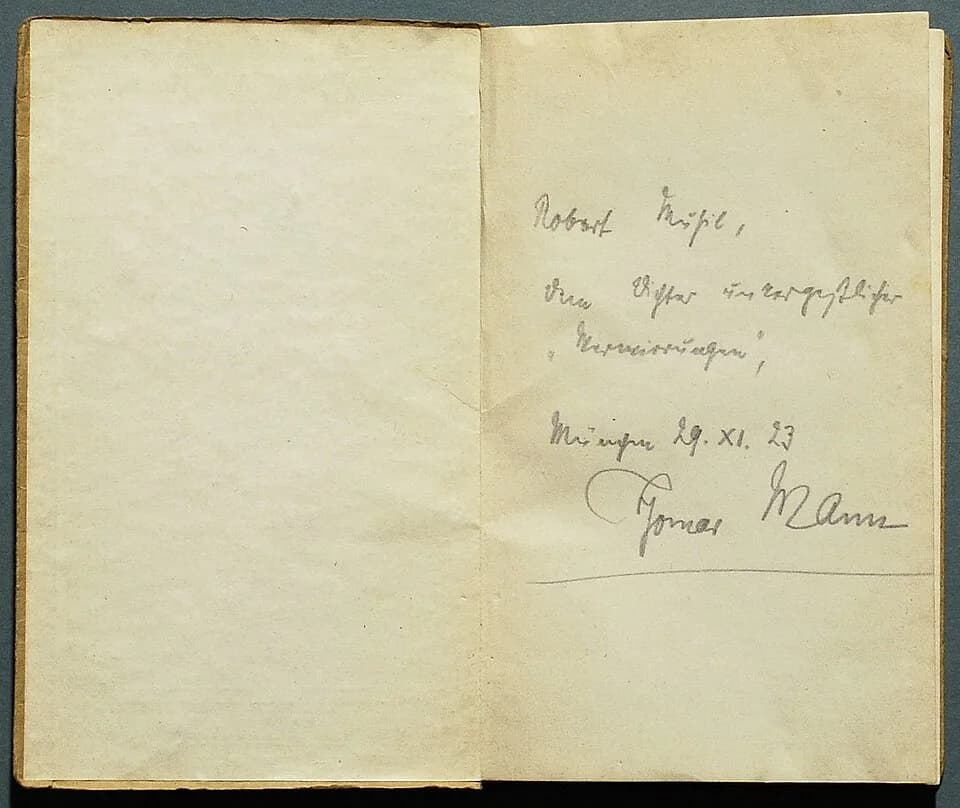 Robert Musil,
dem Dichter unvergeßlicher
„Verwirrungen",
München 29. XI. 23
Thomas Mann